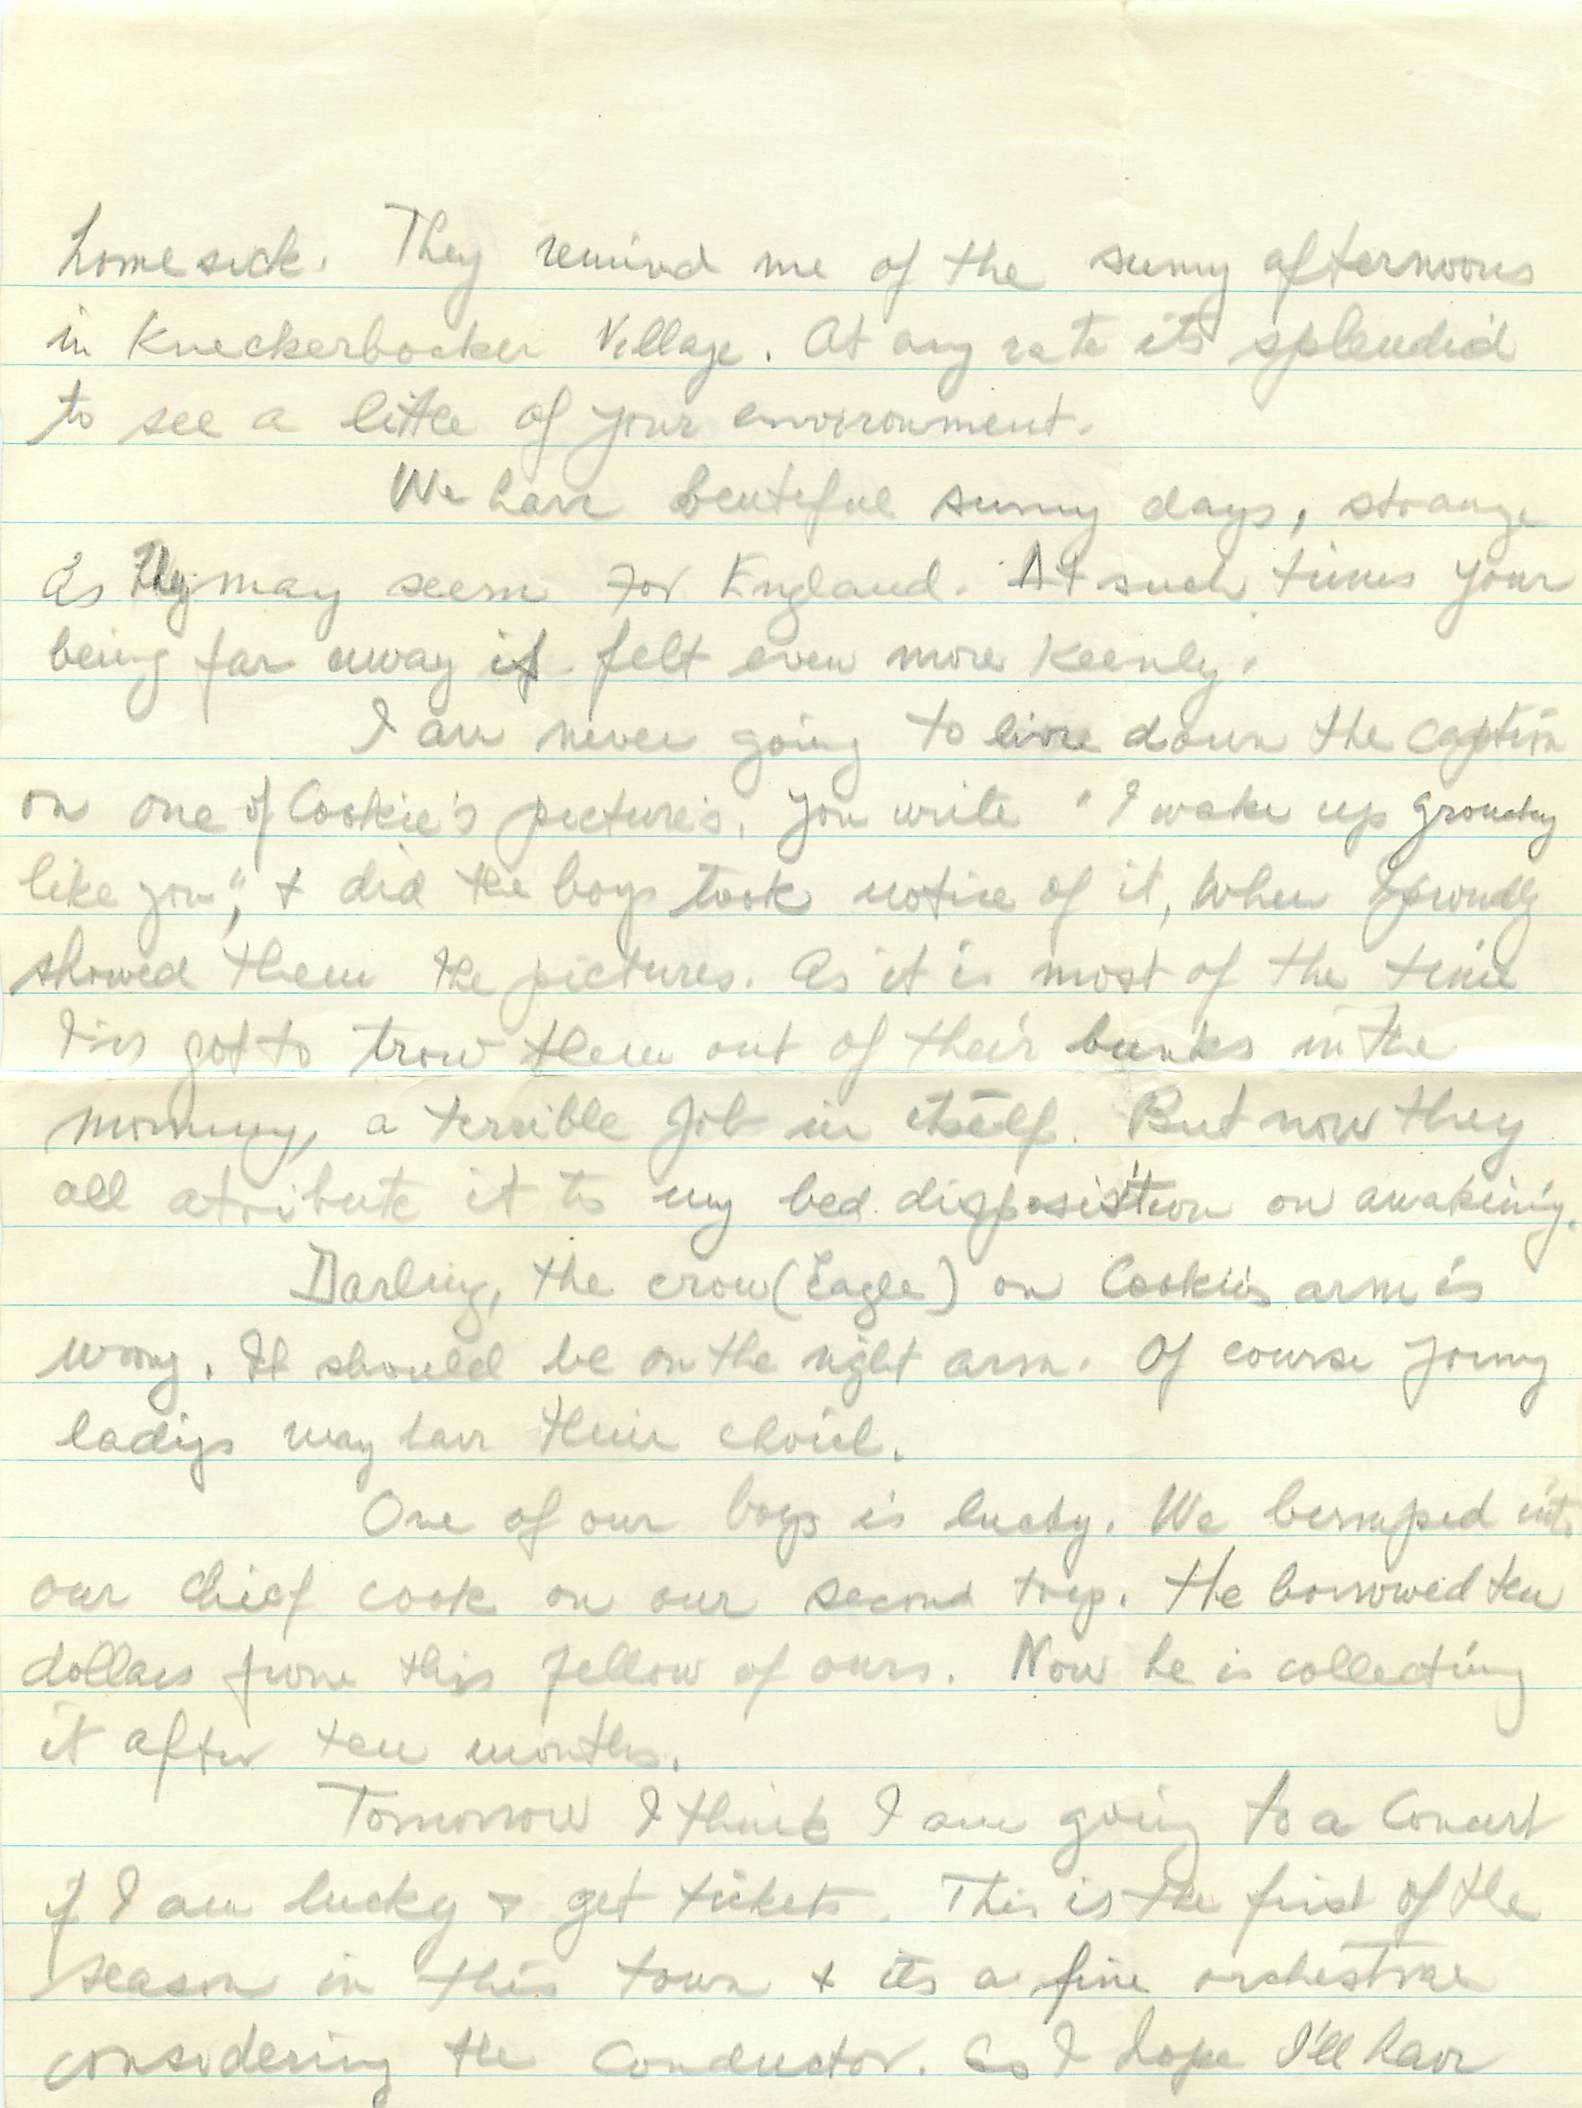 homesick. They remind me of the sunny afternoons
in Kneckerbocker Village. At any rate its splendid
to see a little of your environment.
We have beuteful sunny days, strange
as they may seem for England. At such times your
being far away is felt even more keenly.
I am never going to live down the caption
on one of Cookie's picture's. You write "I wake up grouchy
like you", + did the boys took notice of it, when I proudly
showed them the pictures. As it is most of the time
I'm got to trow them out of their bunks in the
morning, a terrible job in itself. But now they
all atribute it to my bed disposition on awakening.
Darling, the crow (Eagle) on Cookies arm is
wrong. It should be on the right arm. Of course young
ladys may have their choice.
One of our boys is lucky. We bumped into
our chief cook on our second trip. He borrowed ten
dollars from this fellow of ours. Now he is collecting
it after ten months.
Tomorrow I think I am going to a Concert
if I am lucky + get tickets. This is the first of the
season in this town + its a fine orchestrae
considering the conductor. So I hope I'll have